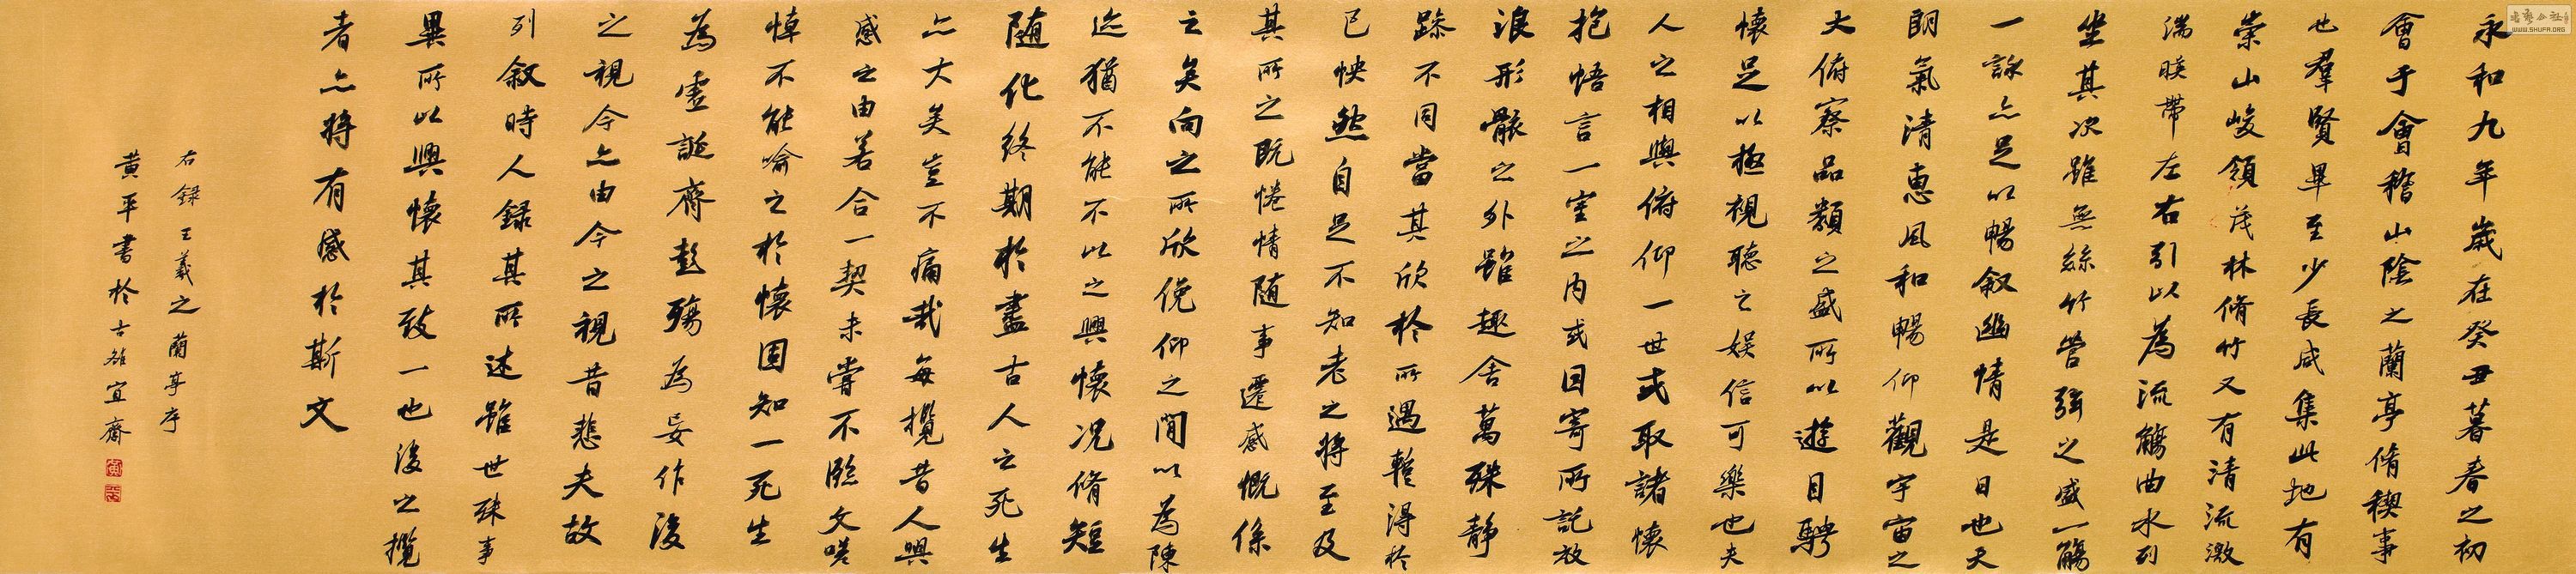 永和九年歲在癸丑暮春之初
會于會稽山陰之蘭亭脩稧事
也羣賢畢至少長咸集此地有
崇山峻領茂林脩竹又有清流激
湍暎帶左右引以為流觴曲水列
坐其次雖無絲竹管弦之盛一觴
一詠亦足以暢叙幽情是日也天
朗氣清惠風和暢仰觀宇宙之
大俯察品類之盛所以遊目騁
懷足以極視聽之娛信可樂也夫
人之相與俯仰一世或取諸懷
抱悟言一室之内或因寄所託放
浪形骸之外雖趣舍萬殊静
躁不同當其欣於所遇暫得於
己怏然自足不知老之將至及
其所之既惓情随事遷感慨係
之矣向之所欣俛仰之間以為陳
迹猶不能不以之興懷況脩短
随化終期於盡古人云死生
亦大矣豈不痛哉每攬昔人興
感之由若合一契未嘗不臨文嗟
悼不能喻之於懷固知一死生
為虛誕齊彭殤為妄作後
之視今亦由今之視昔悲夫故
列叙時人録其所述雖世殊事
異所以興懷其致一也後之攬
者亦將有感於斯文
右録王羲之蘭亭序
黄平書於古雒宜齋
WWW.SHUFA.ORG